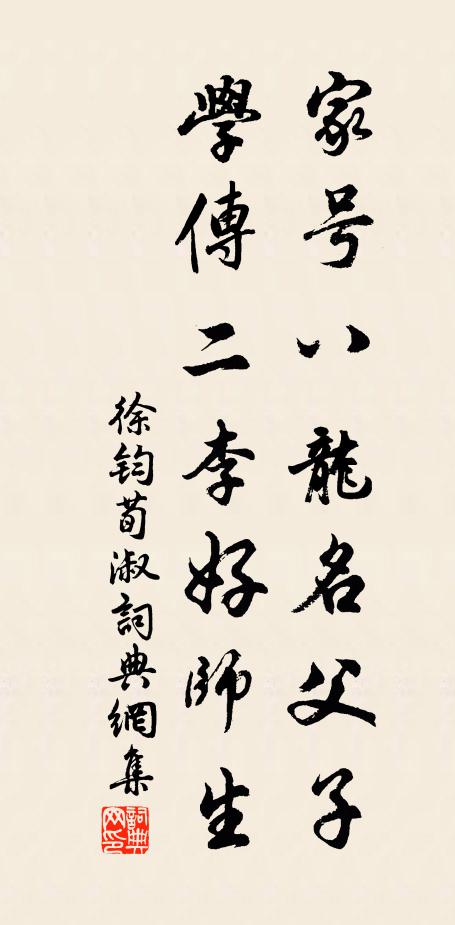 家号八龍名父子
學傳二李好師生
徐鈞荀淑詞典網集
詞典網印